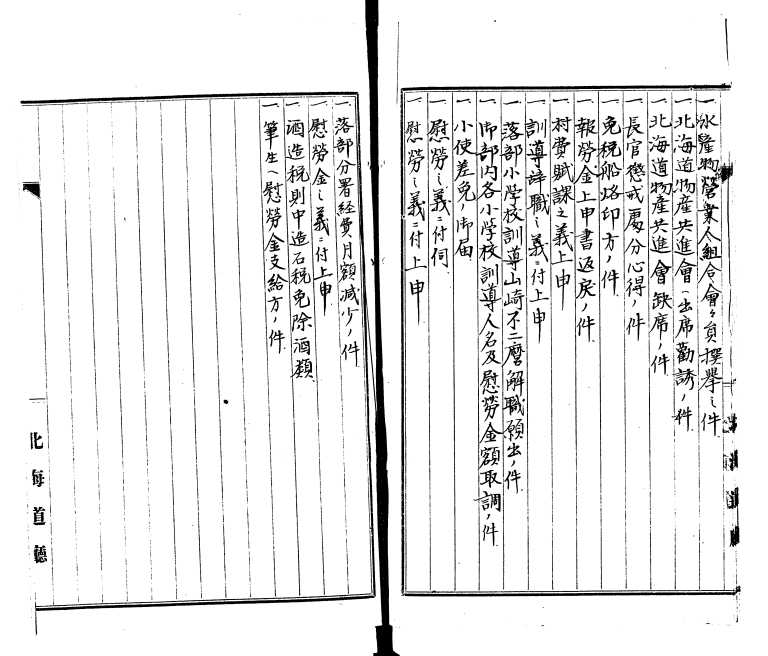 一 水産物営業人組合会々員撰挙之件
一 北海道物産共進會ヘ出席勸誘ノ件
一 北海道物産共進會缺席ノ件
一 長官懲戒處分心得ノ件
一 免税船烙印方ノ件
一 報勞金上申書返戻ノ件
一 村費賦課之義上申
一 訓導辞職之義ニ付上申
一 落部小学校訓導山崎不二麿解職願出ノ件
一 御部内各小学校訓導人名及慰勞金額取調ノ件
一 小使差免ノ御届
一 慰勞之義ニ付伺
一 慰勞之義ニ付上申
一 落部分署経費月額減少ノ件
一 慰勞金之義ニ付上申
一 酒造税則中造石税免除酒類
一 筆生ヘ慰勞金支給方ノ件
北海道廳